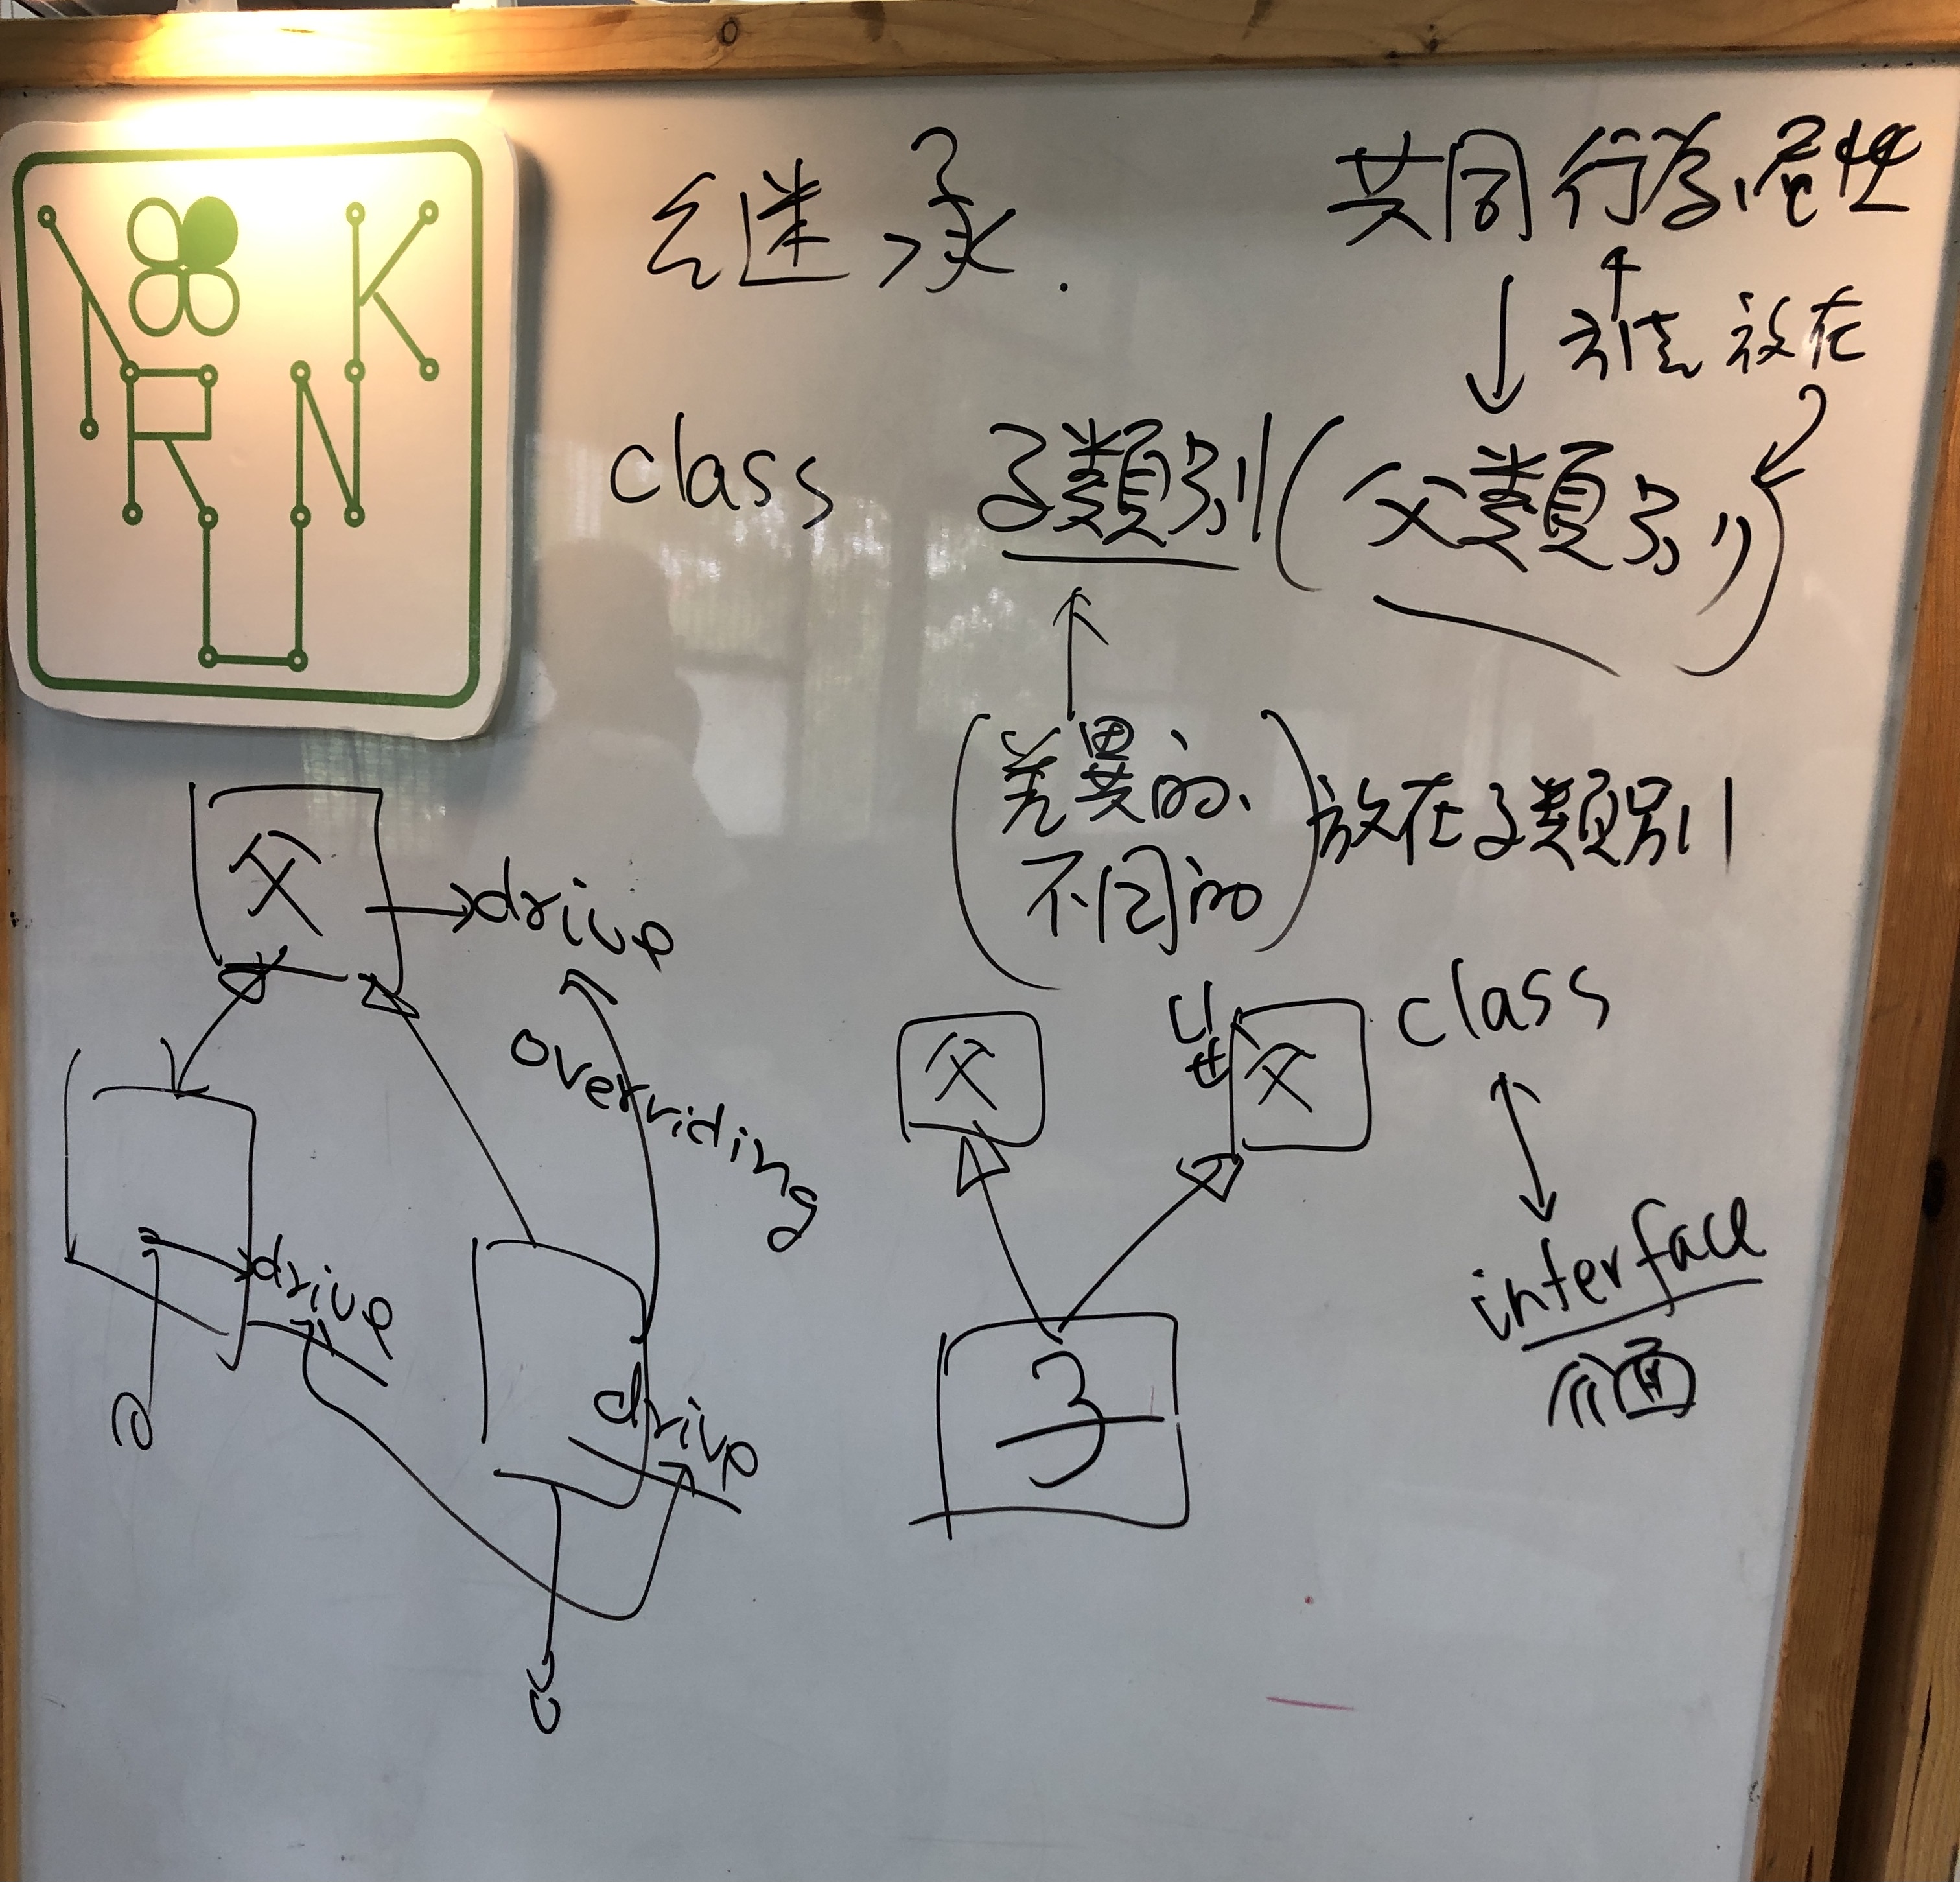 继承.
共同行为,屬性
方法 放在
class 子類別(父類別)
差異的、
不同的
放在子類別
父
drive
overriding
drive
drive
父
父
class
子
interface
介面